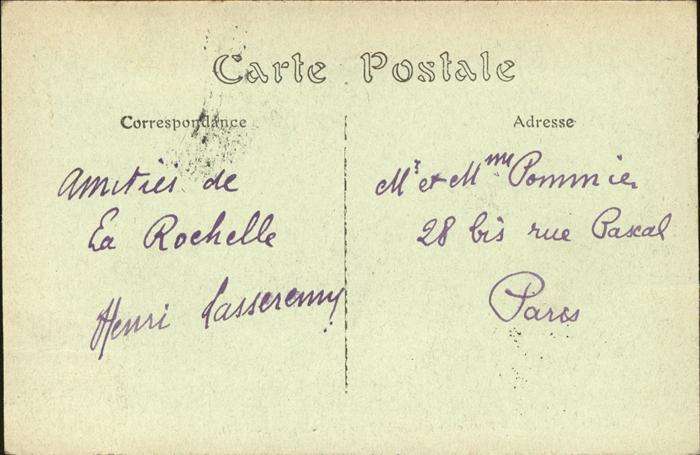 Carte Postale
Correspondance
Amitiés de
La Rochelle
Henri
Adresse
Mr et Mme Pommier
28 bis rue Pascal
Paris